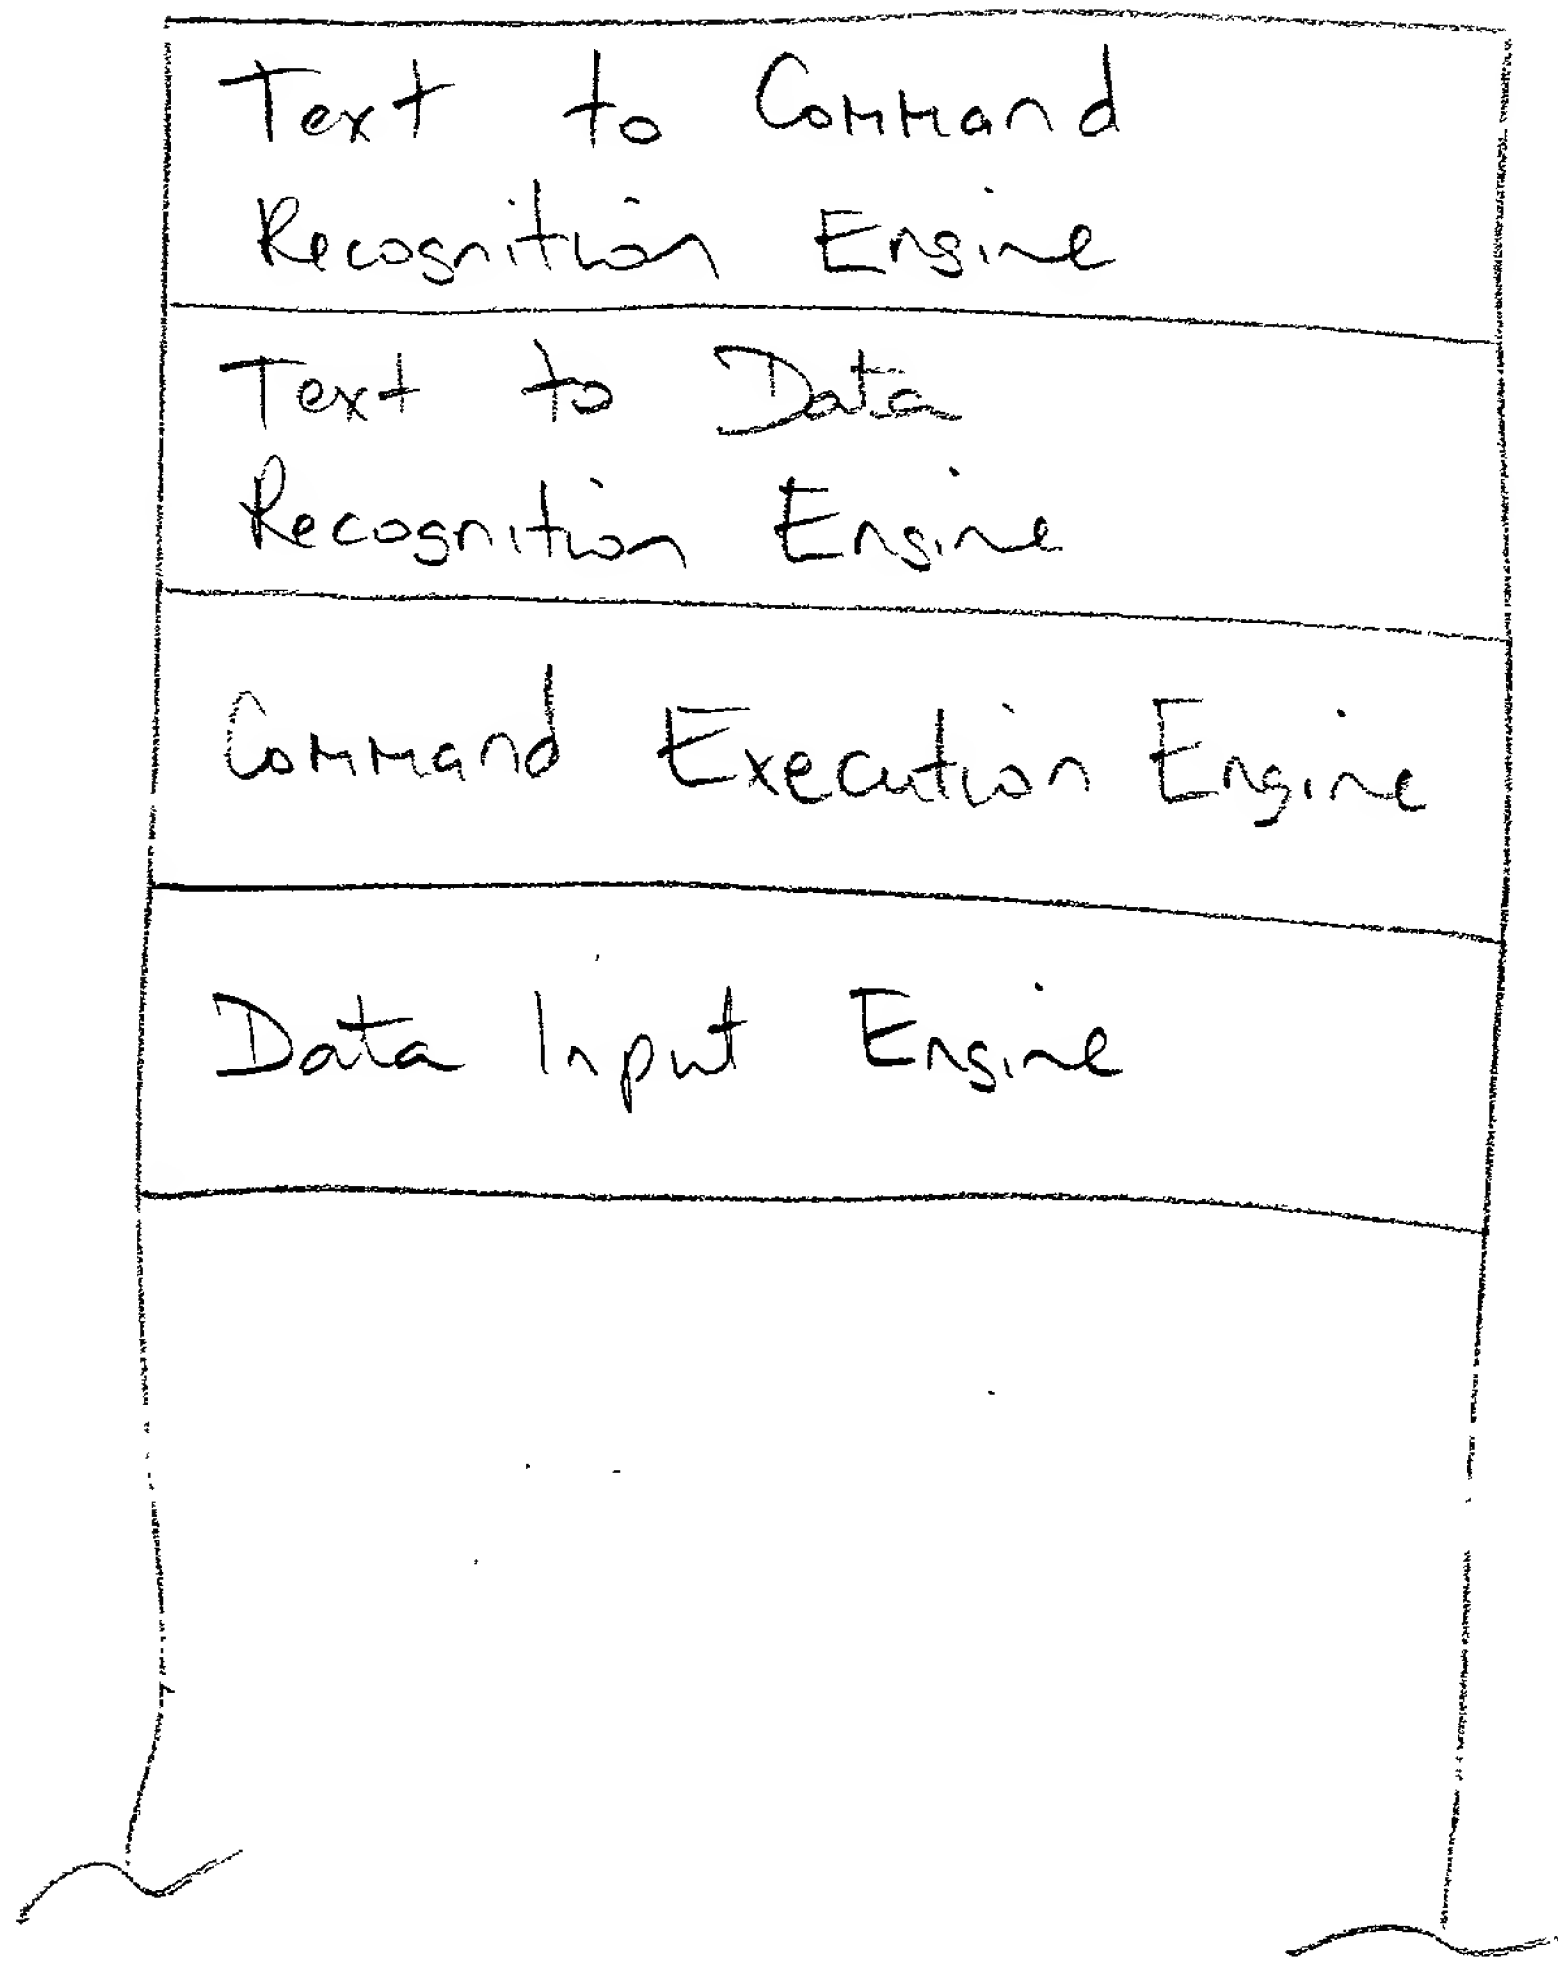 Text to Command
Recognition Engine
Text to Data
Recognition Engine
Command Execution Engine
Data Input Engine